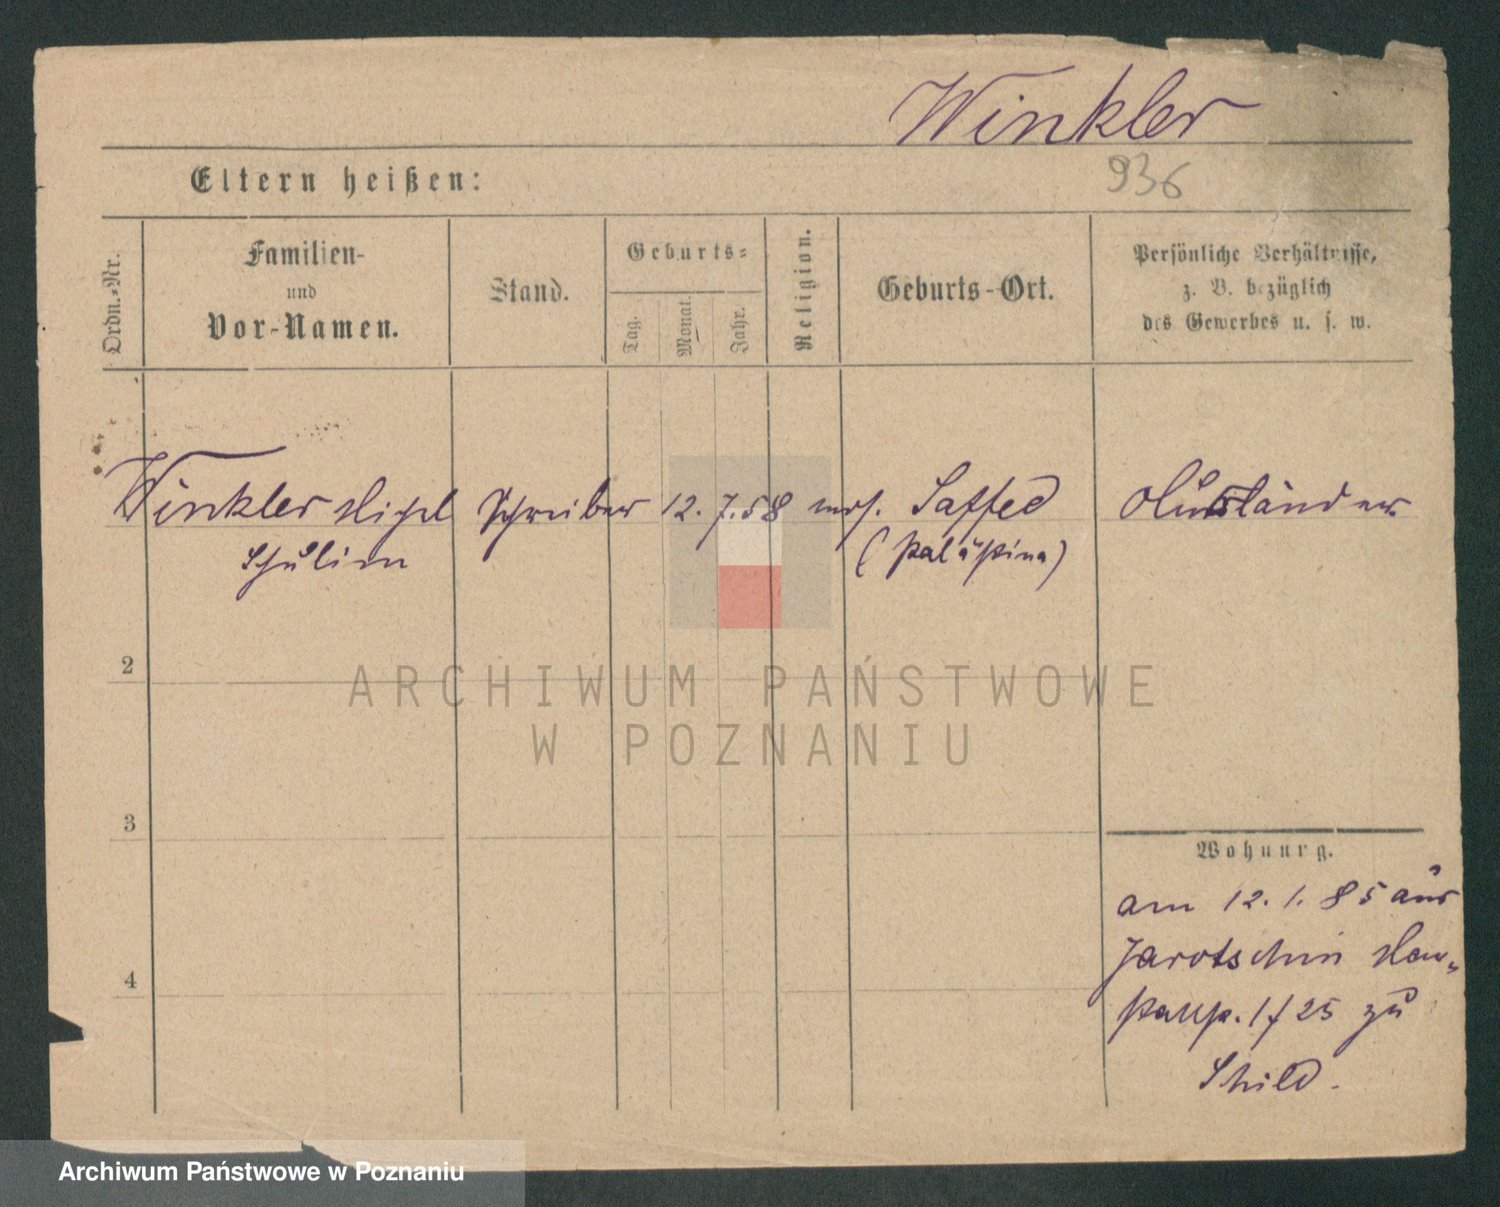 Winkler
936
Eltern heißen:
Ordn.-Nr.
Familien-
und
Vor-Namen.
Stand.
Geburts-
Tag.
Monat.
Jahr.
Religion.
Geburts-Ort.
Persönliche Verhältnisse,
z. B. bezüglich
des Gewerbes u. s. w.
Winkler Schreiber 12. 7. 58 mos. Saffed Ausländer
Schulim (Palästina)
2
3
4
Wohnung.
am 12. 1. 85 aus
Jarotschin
1/25 zu
Schild.
ARCHIWUM PAŃSTWOWE
W POZNANIU
Archiwum Państwowe w Poznaniu